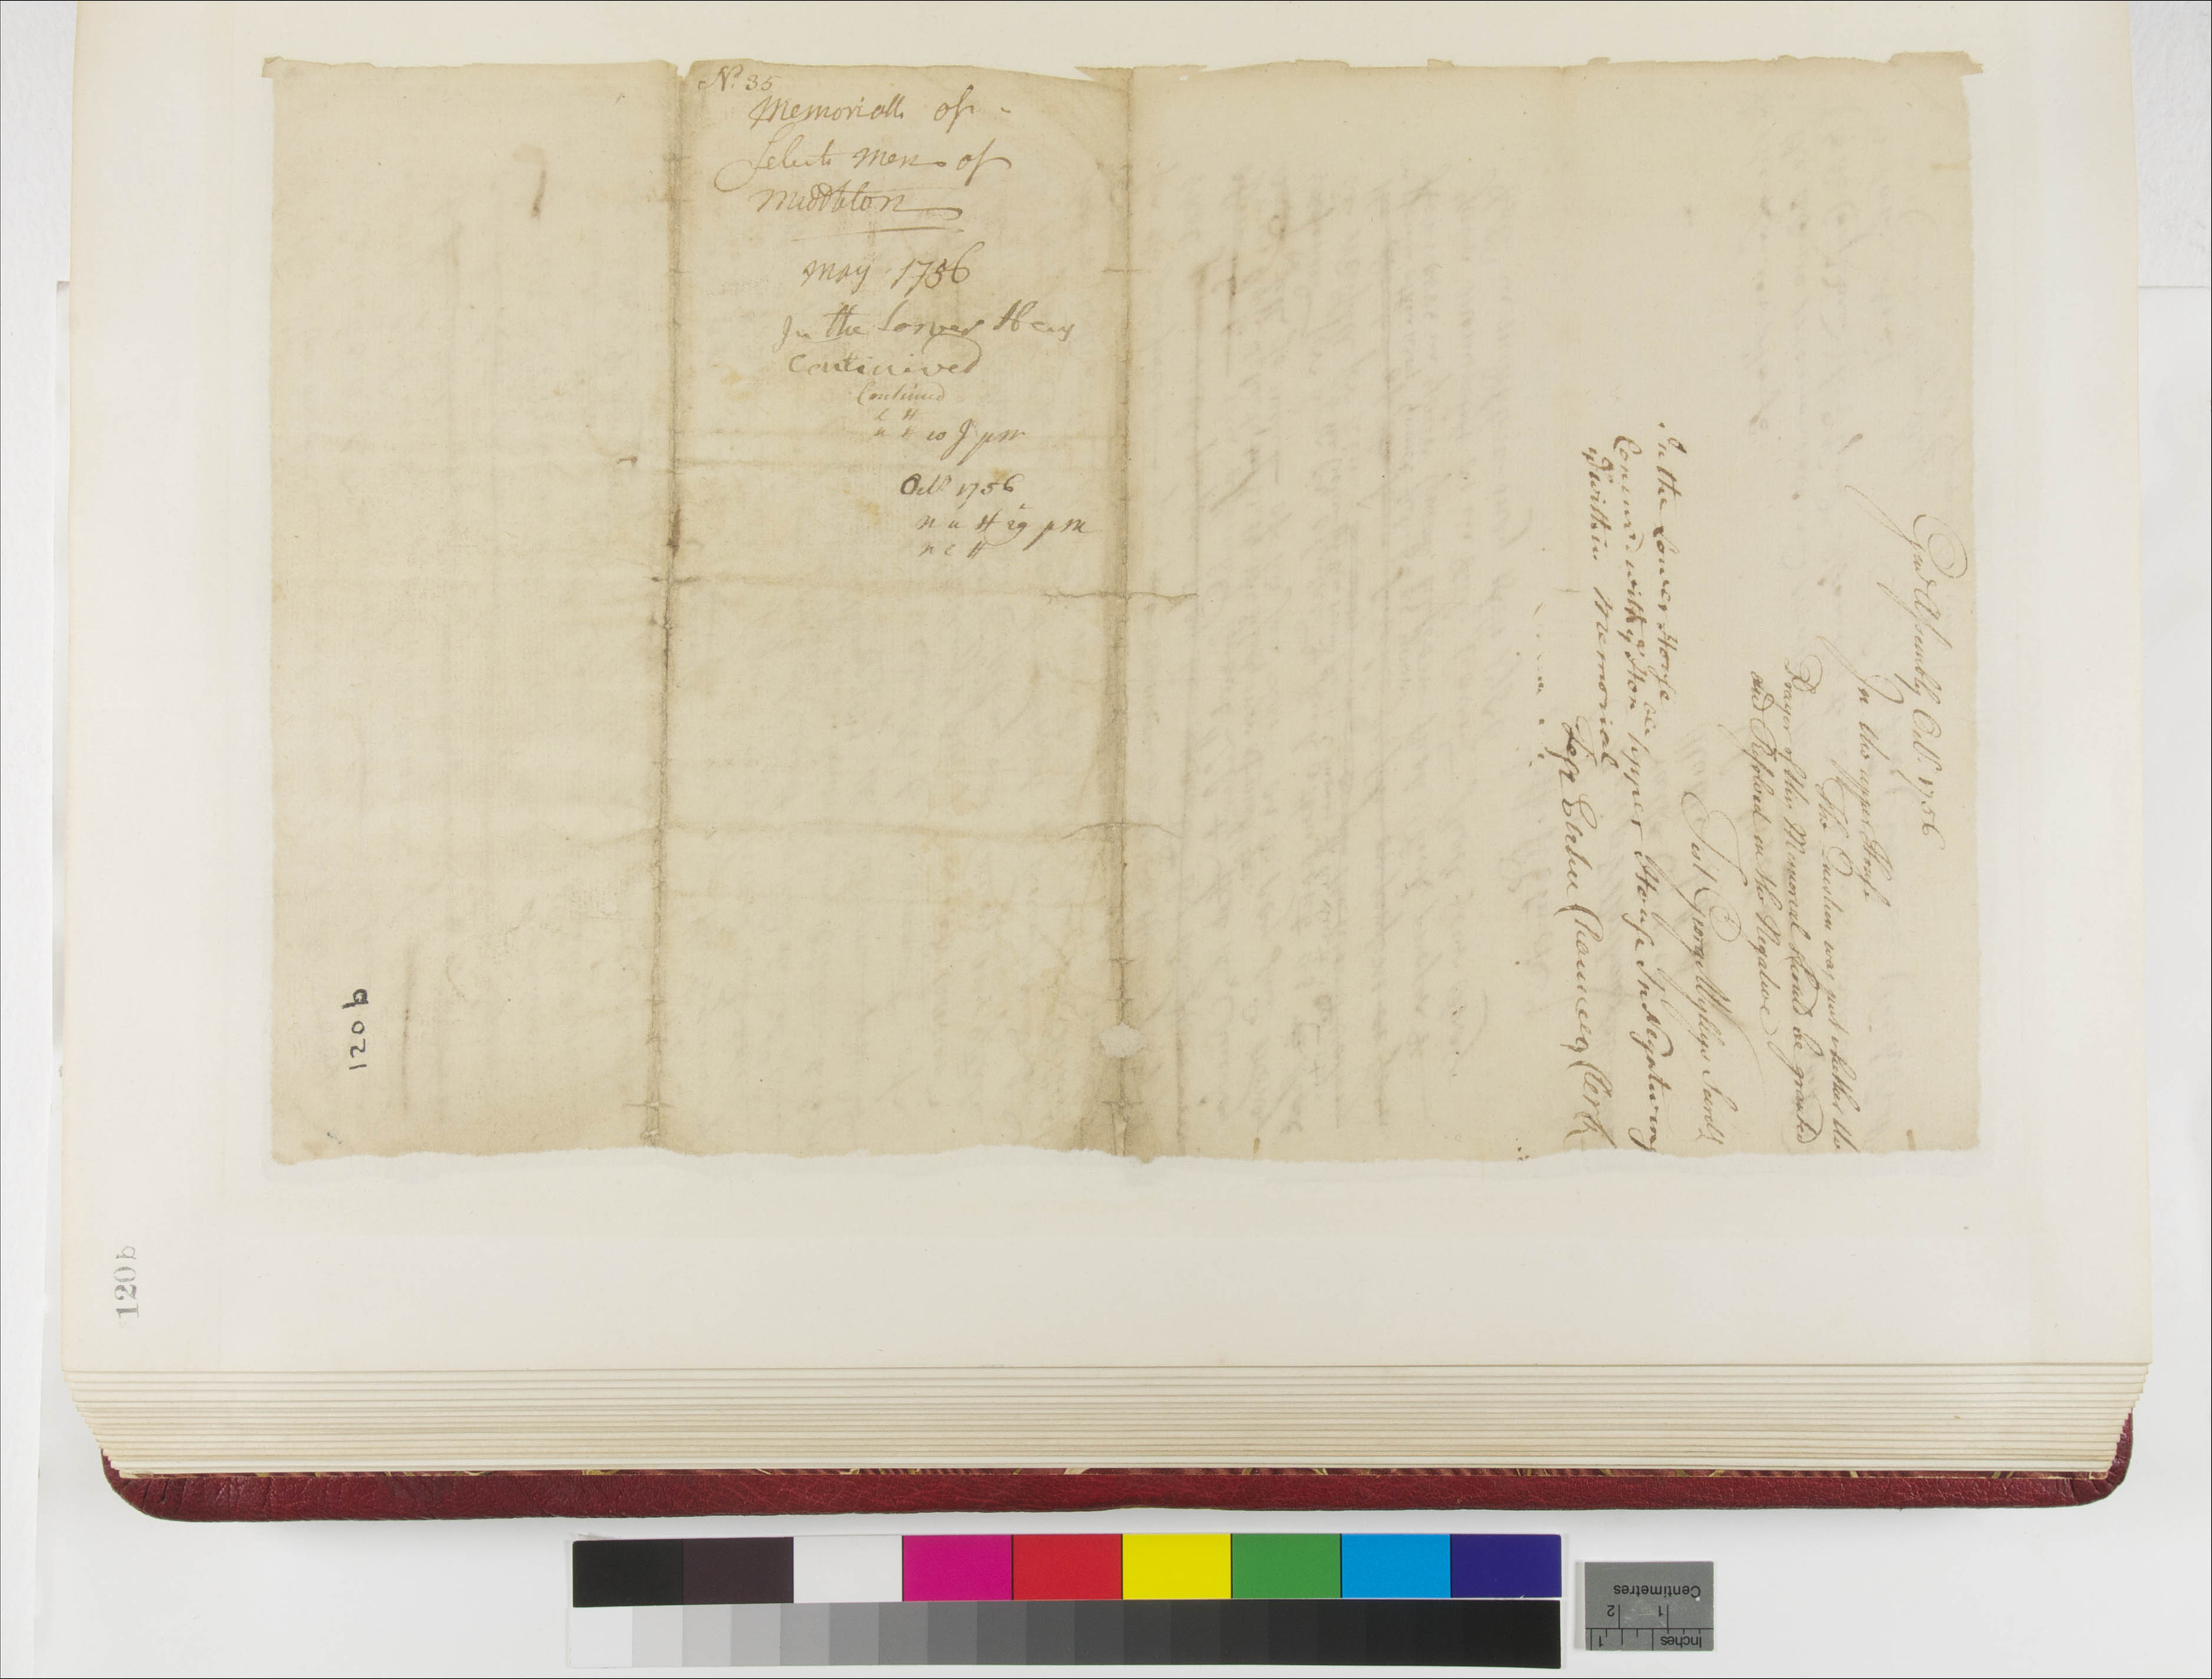 No. 35
Memoriall of
Select Men of
Middleton
May 1756
In the Lower House
Continued
Continued
Octr 1756
n u H
n l H
Genll Assembly Octr. 1756
In the upper House
The Question was put whether the
Prayer of this Memorial should be granted
and Resolved in the Negative
Test George Wyllys Secrety
In the Lower House
Concurrd with ye Honl upper House In Negativing
ye within Memorial
Test Elihu Chauncey Clerk
120 b
120 b
Centimetres
1 2
Inches
1